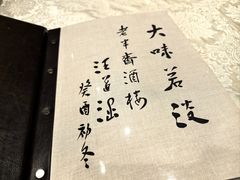 大味若淡
老半斋酒楼
汪道涵
癸酉初冬